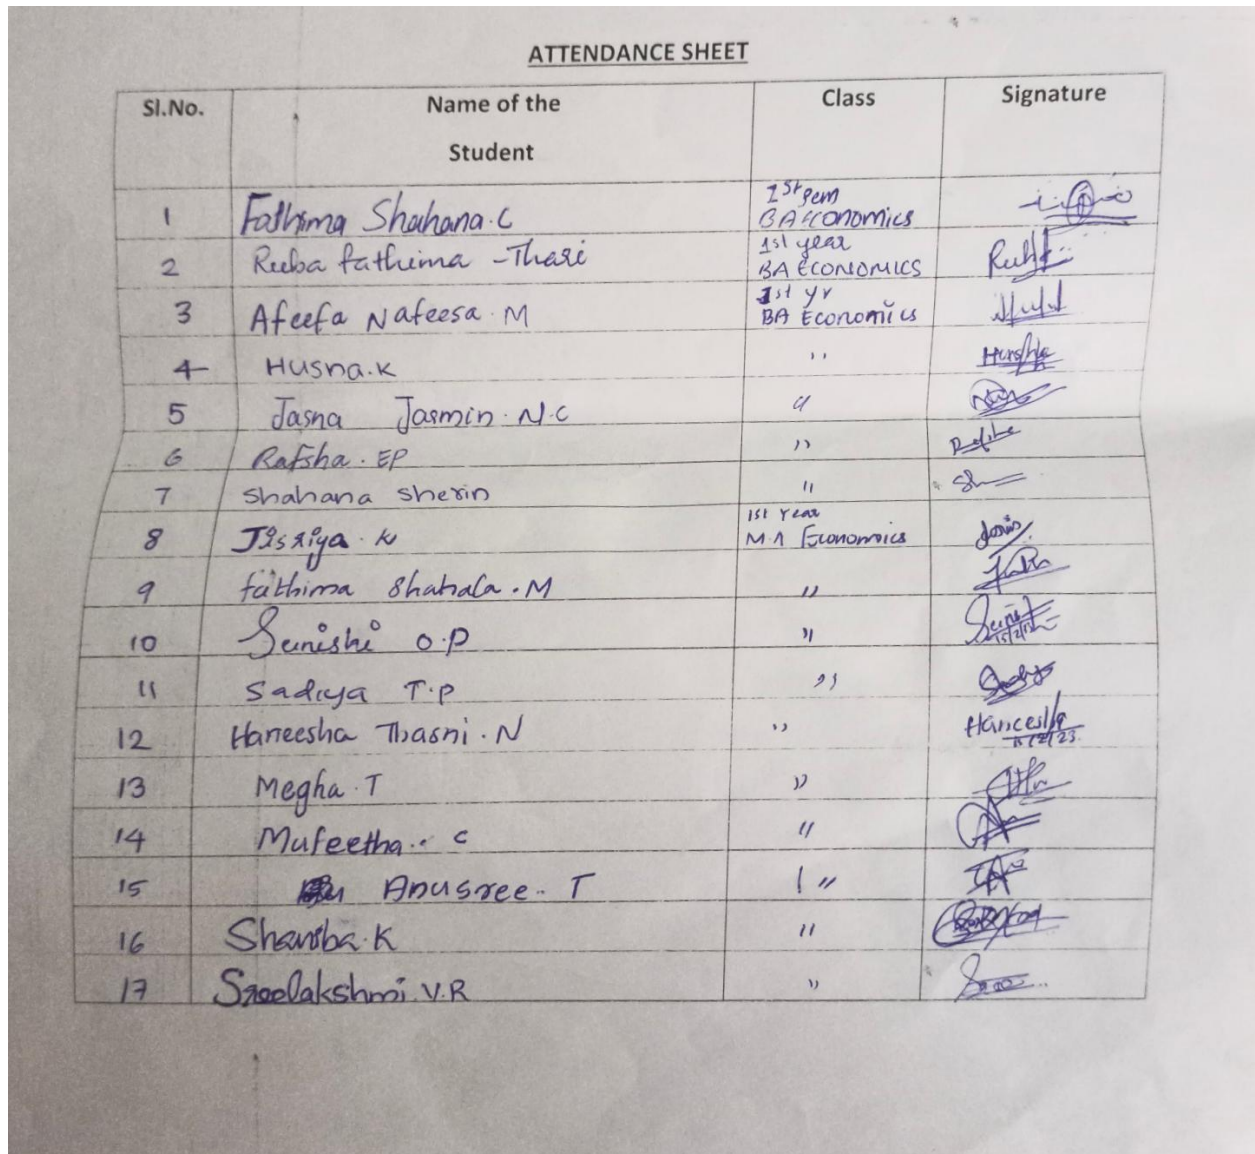 ATTENDANCE SHEET
Sl.No. Name of the Student Class Signature
1 Fathima Shahana.C 1st sem BA Economics
2 Reeba fathima - Thari 1st year BA ECONOMICS
3 Afeefa Nafeesa.M 1st yr BA Economics
4 Husna.K ,,
5 Jasna Jasmin.N.C ,,
6 Rafsha.EP ,,
7 Shahana Sherin ,,
8 Jisriya.K 1st Year M.A Economics
9 fathima Shahala.M ,,
10 O.P ,, 15/2/23
11 Sadiya T.P ,,
12 Haneesha Thasni.N ,, Haneesha 15/2/23
13 Megha.T ,,
14 Mufeetha.. C ,,
15 Anusree. T ,,
16 Shaniba.K ,,
17 Sreelakshmi.V.R ,,